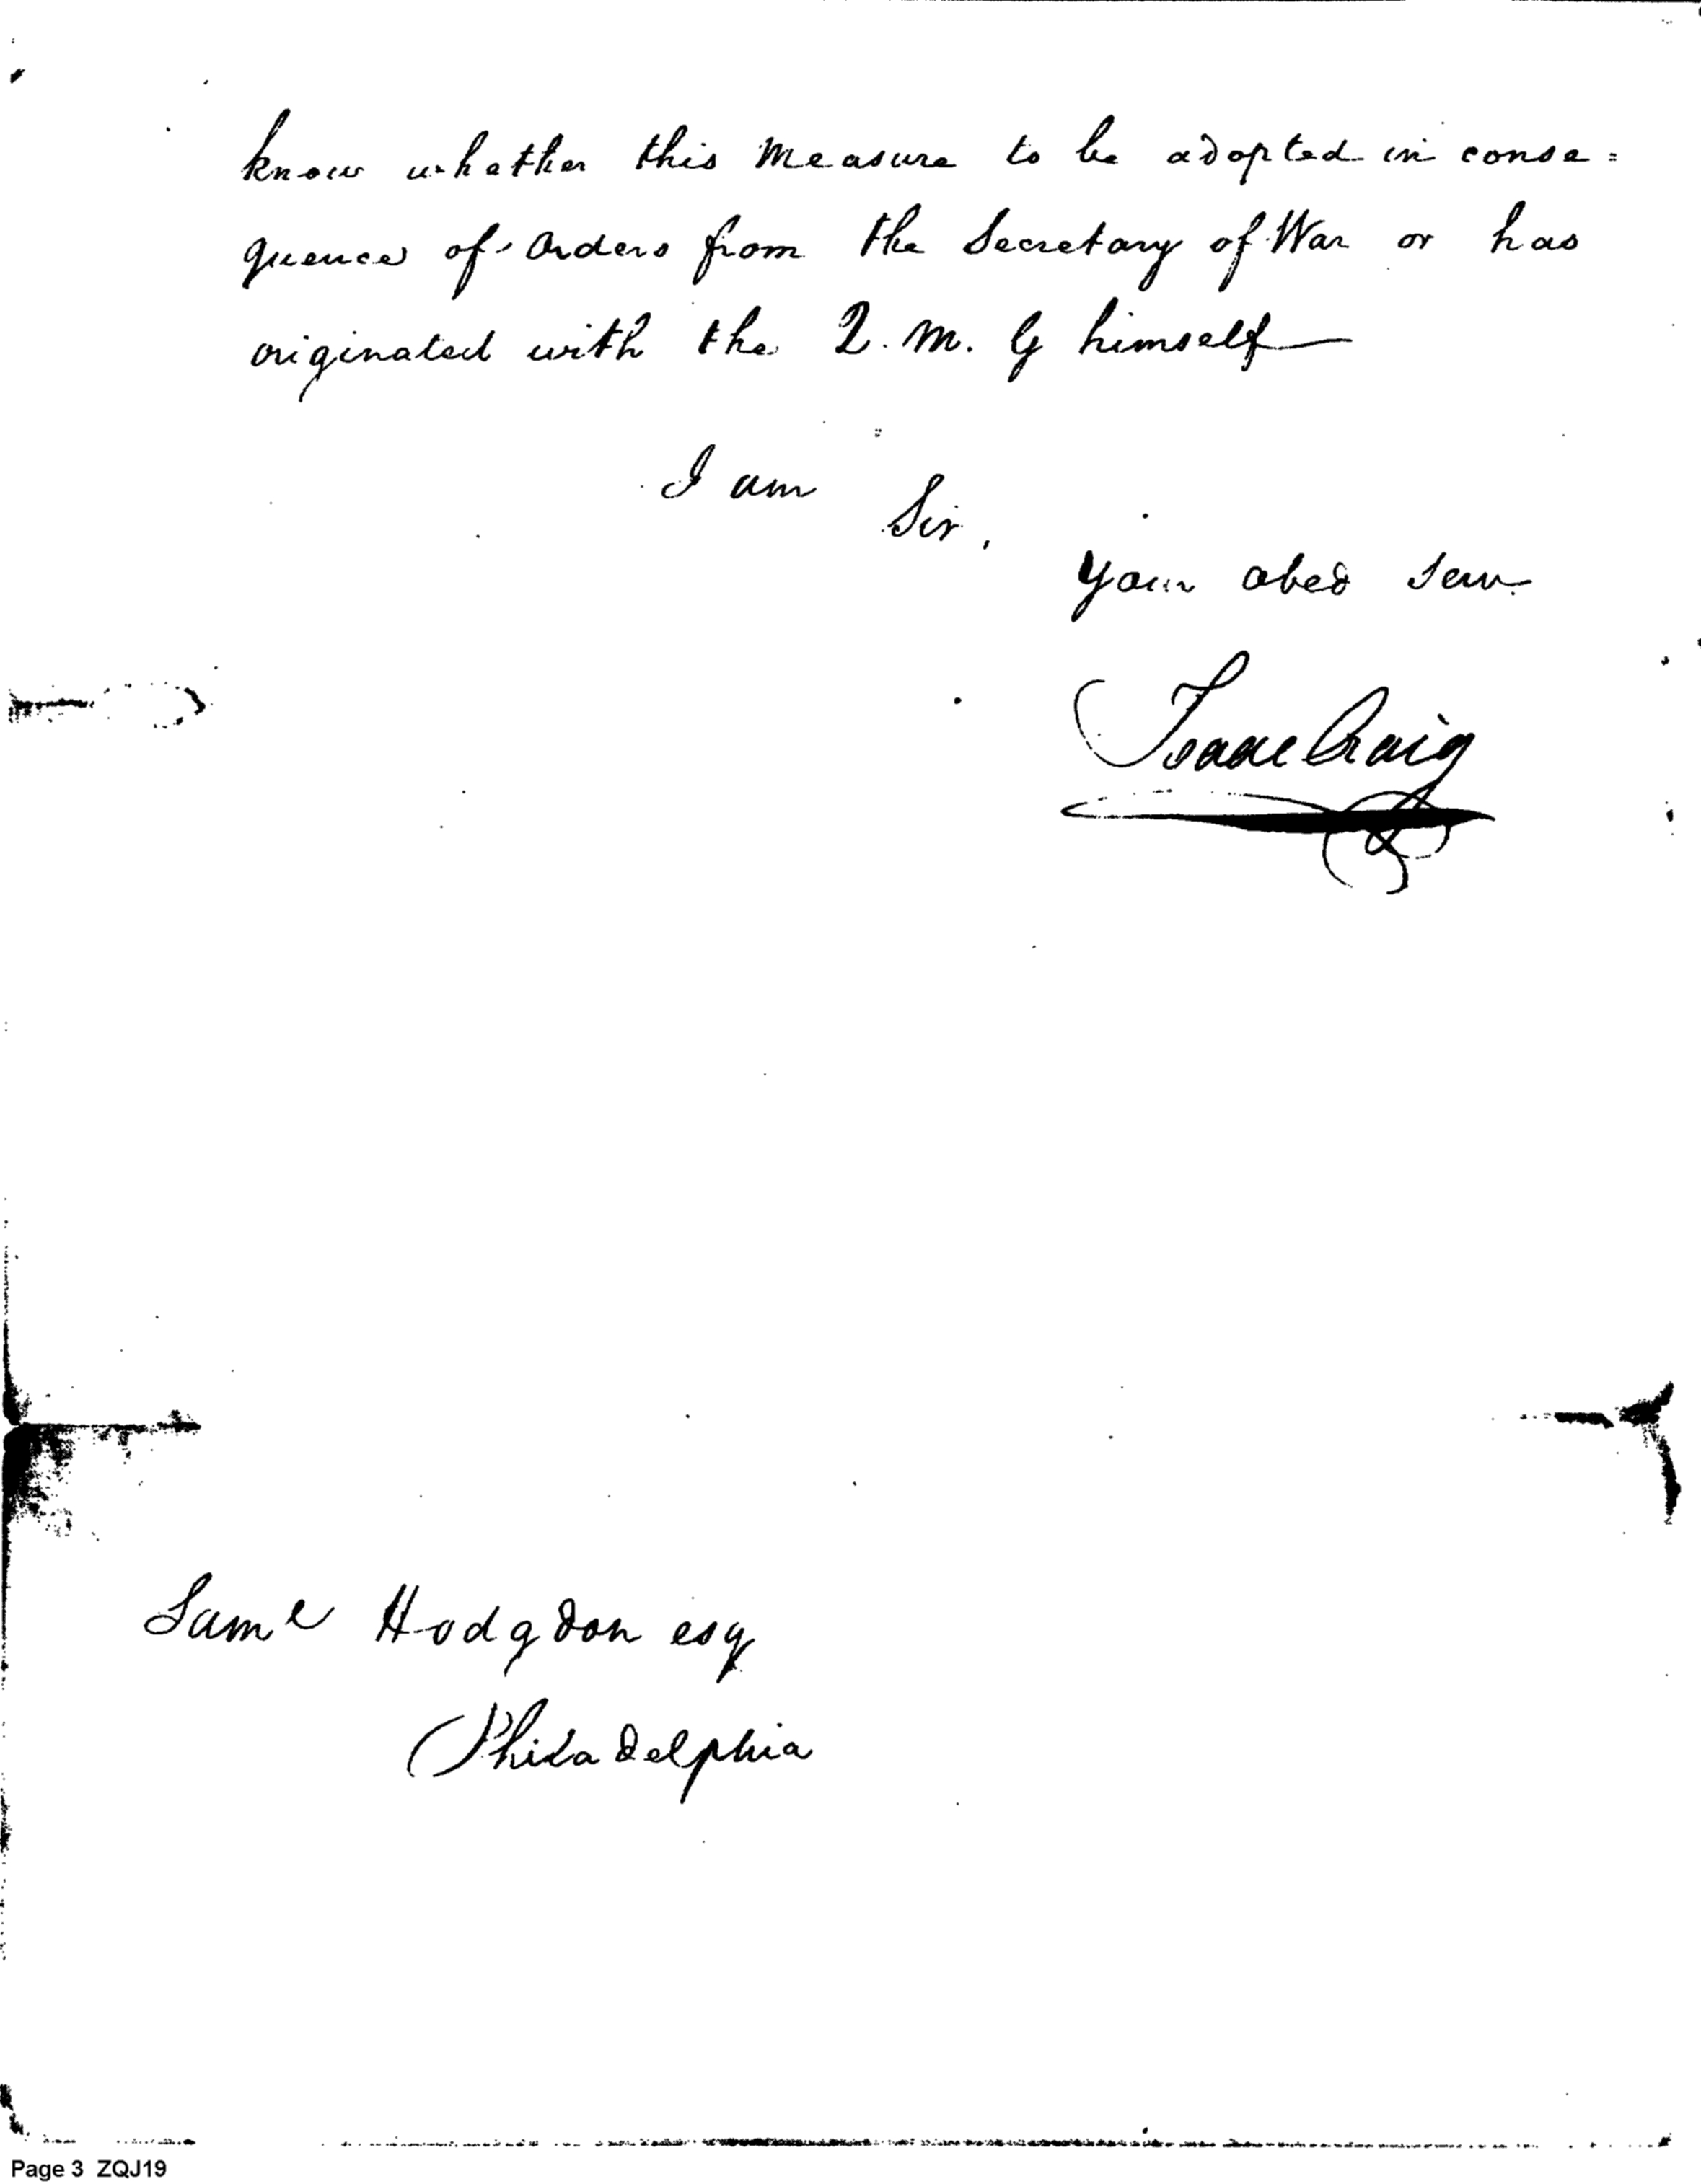 know whether this Measure to be adopted in conse=
quence of Orders from the Secretary of War or has
originated with the Q. M. G himself
I am
Sir,
your obed serv.
Isaac Craig
Saml Hodgdon esq
Philadelphia
Page 3 ZQJ19